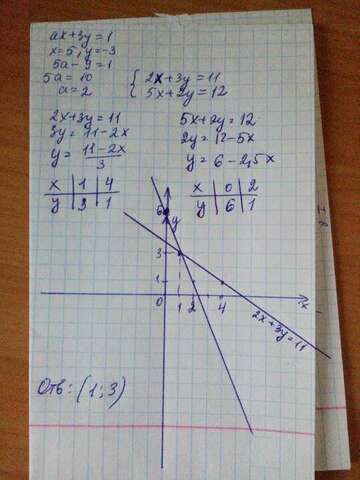 ax+3y=1
x=5, y=-3
5a-9=1
5a=10
a=2
{ 2x+3y=11
5x+2y=12
2x+3y=11
3y=11-2x
y= (11-2x)/3
x 1 4
y 3 1
5x+2y=12
2y=12-5x
y=6-2,5x
x 0 2
y 6 1
6 y
3
1
0 1 2 4 x
2x+3y=11
Отв: (1;3)